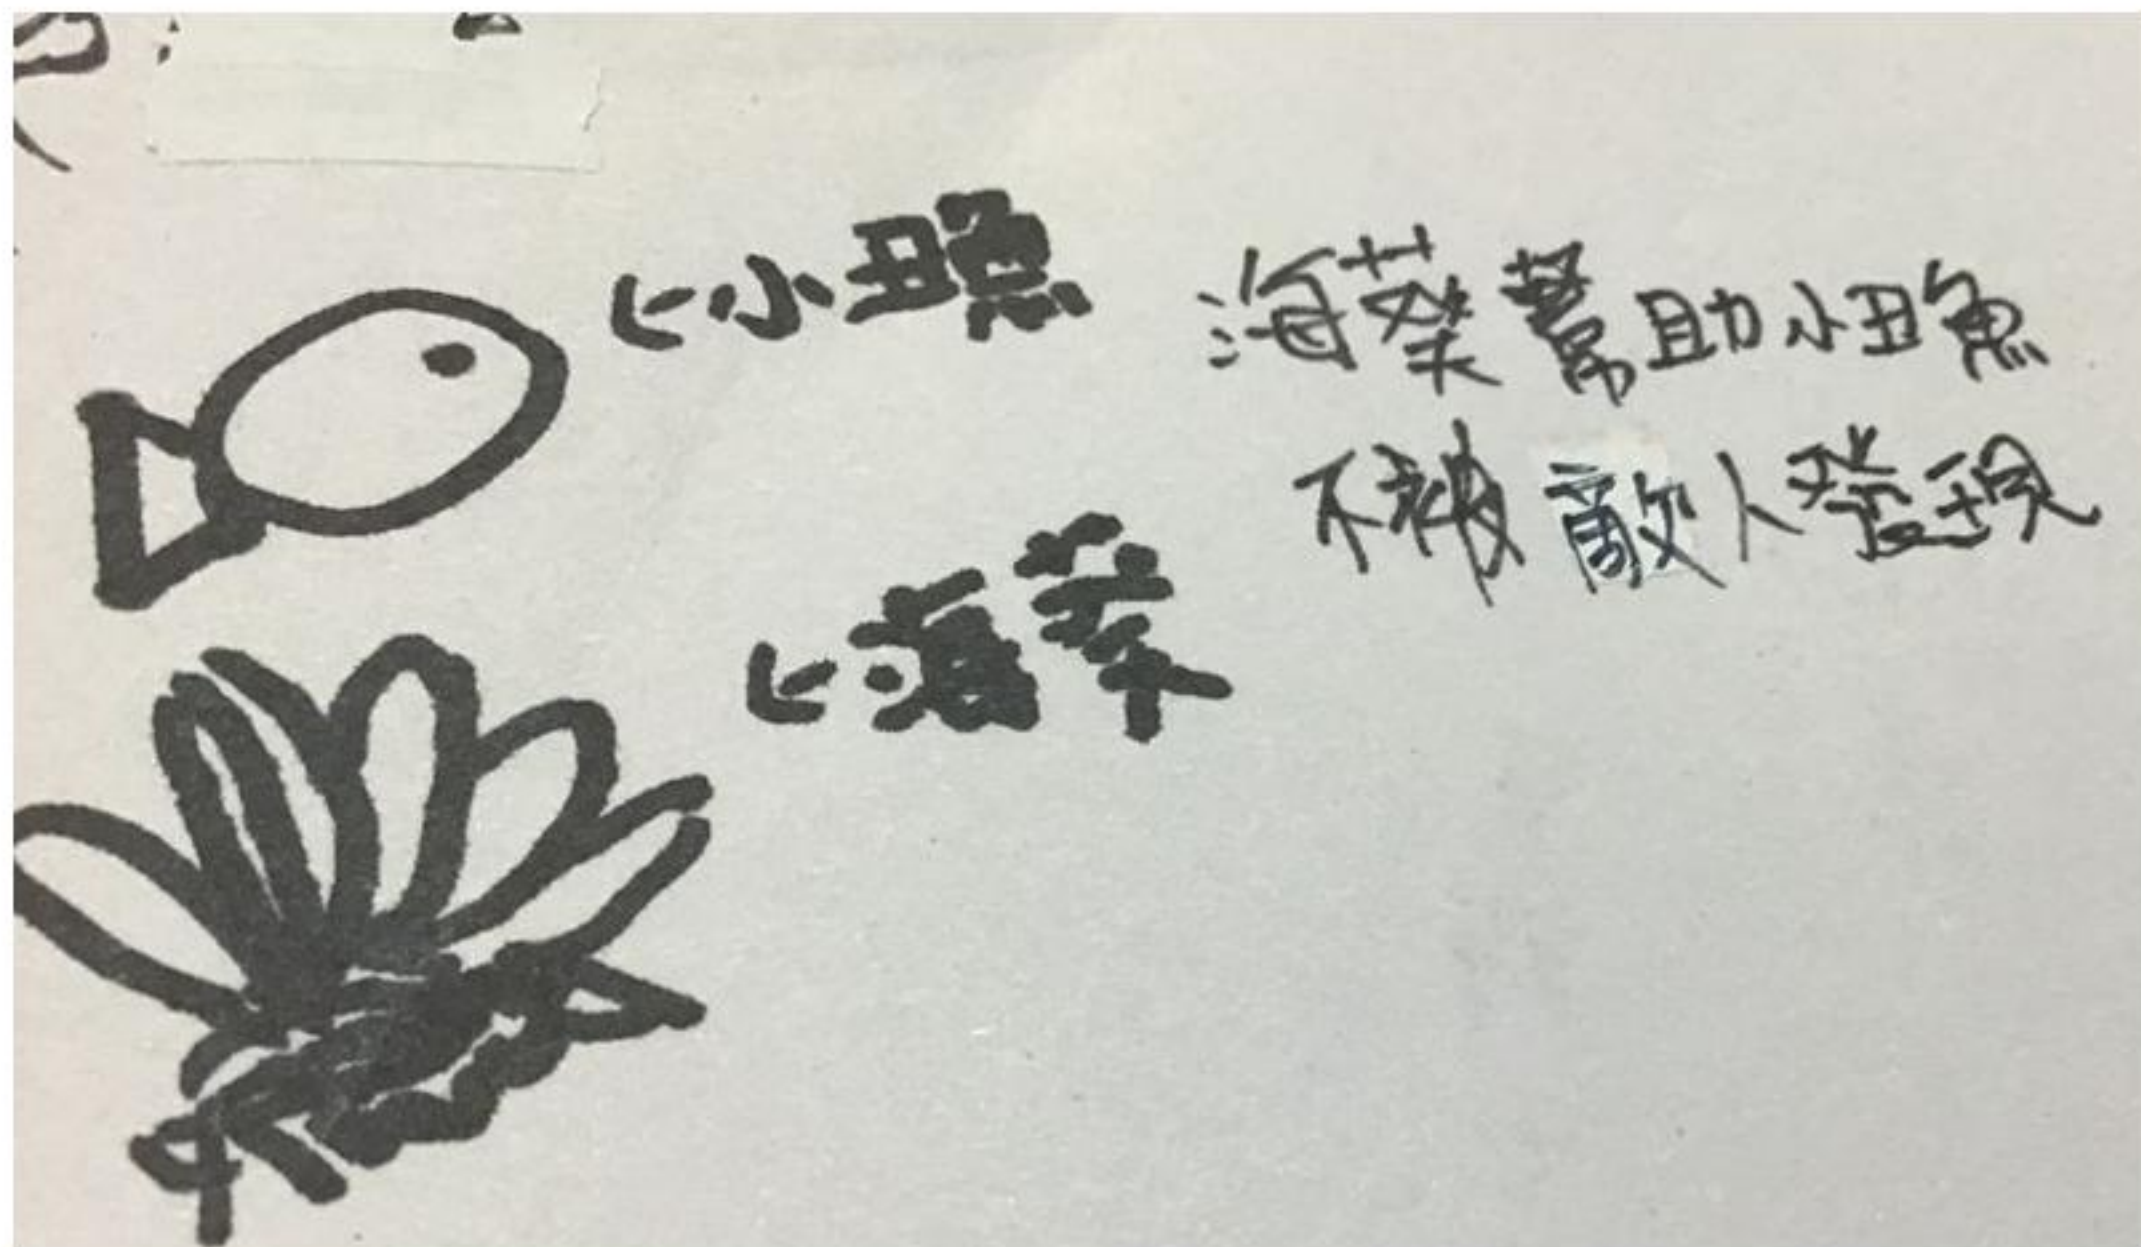 小丑魚
海葵幫助小丑魚
不被敵人發現
海葵